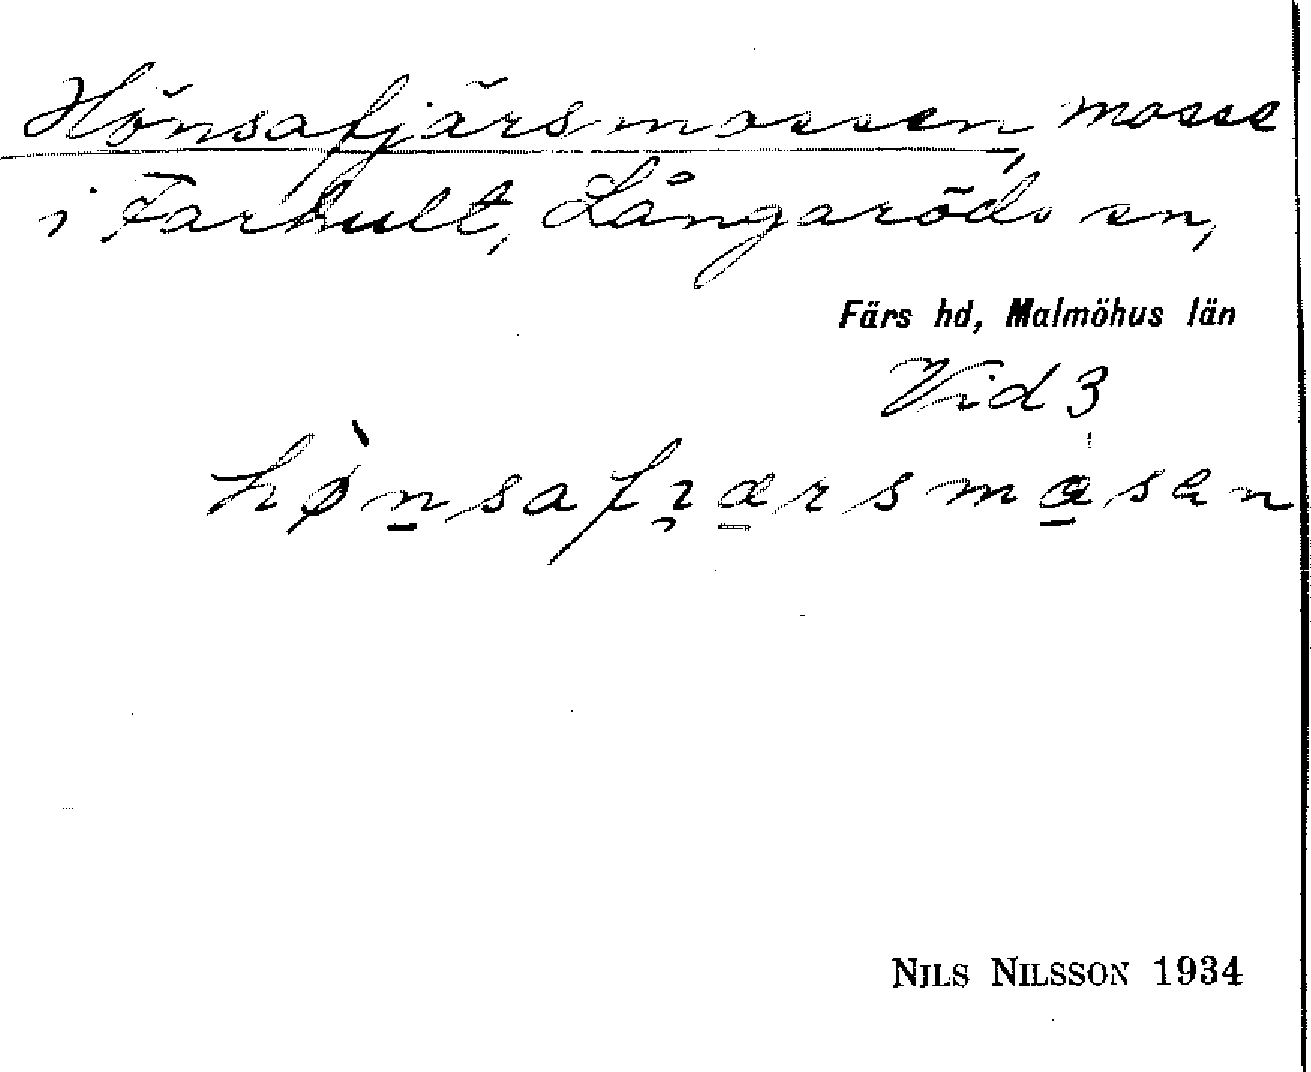 Hönsafjärsmossen, mosse
i Farhult, Långaröds sn,
Färs hd, Malmöhus län
Vid 3
hø̀n̲safɪ̯æ̲rsmɑ̲sen
NILS NILSSON 1934